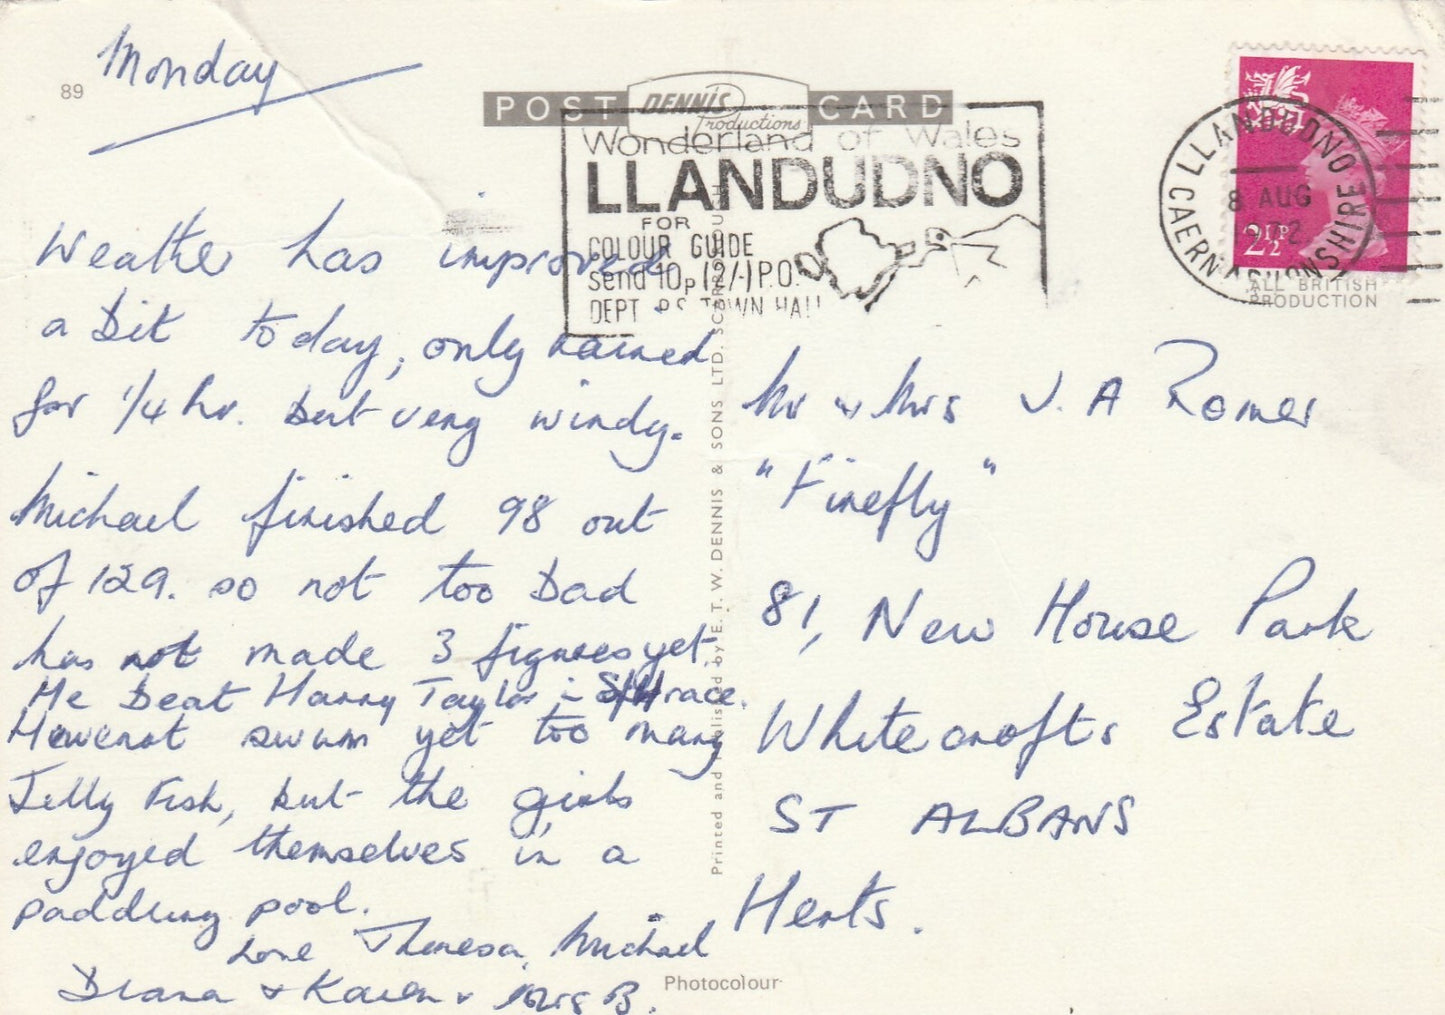 89
Monday
POST CARD
DENNIS
Productions
Wonderland of Wales
LLANDUDNO
FOR
COLOUR GUIDE
send 10p (2/-) P.O.
DEPT P.S TOWN HALL
LLANDUDNO
8 AUG
1972
CAERNARVONSHIRE
2½P
ALL BRITISH
PRODUCTION
Weather has improved
a bit today, only rained
for 1/4 hr. but very windy.
Michael finished 98 out
of 129. so not too bad
has not made 3 figures yet.
He beat Harry Taylor - race.
Havenot swum yet too many
Jelly Fish, but the girls
enjoyed themselves in a
paddling pool.
Love Theresa, Michael
Diana & Karen & Mrs B.
Mr & Mrs J. A Romer
"Firefly"
81, New House Park
Whitecrofts Estate
ST ALBANS
Herts.
Printed and Published by E. T. W. DENNIS & SONS LTD. SCARBOROUGH
Photocolour